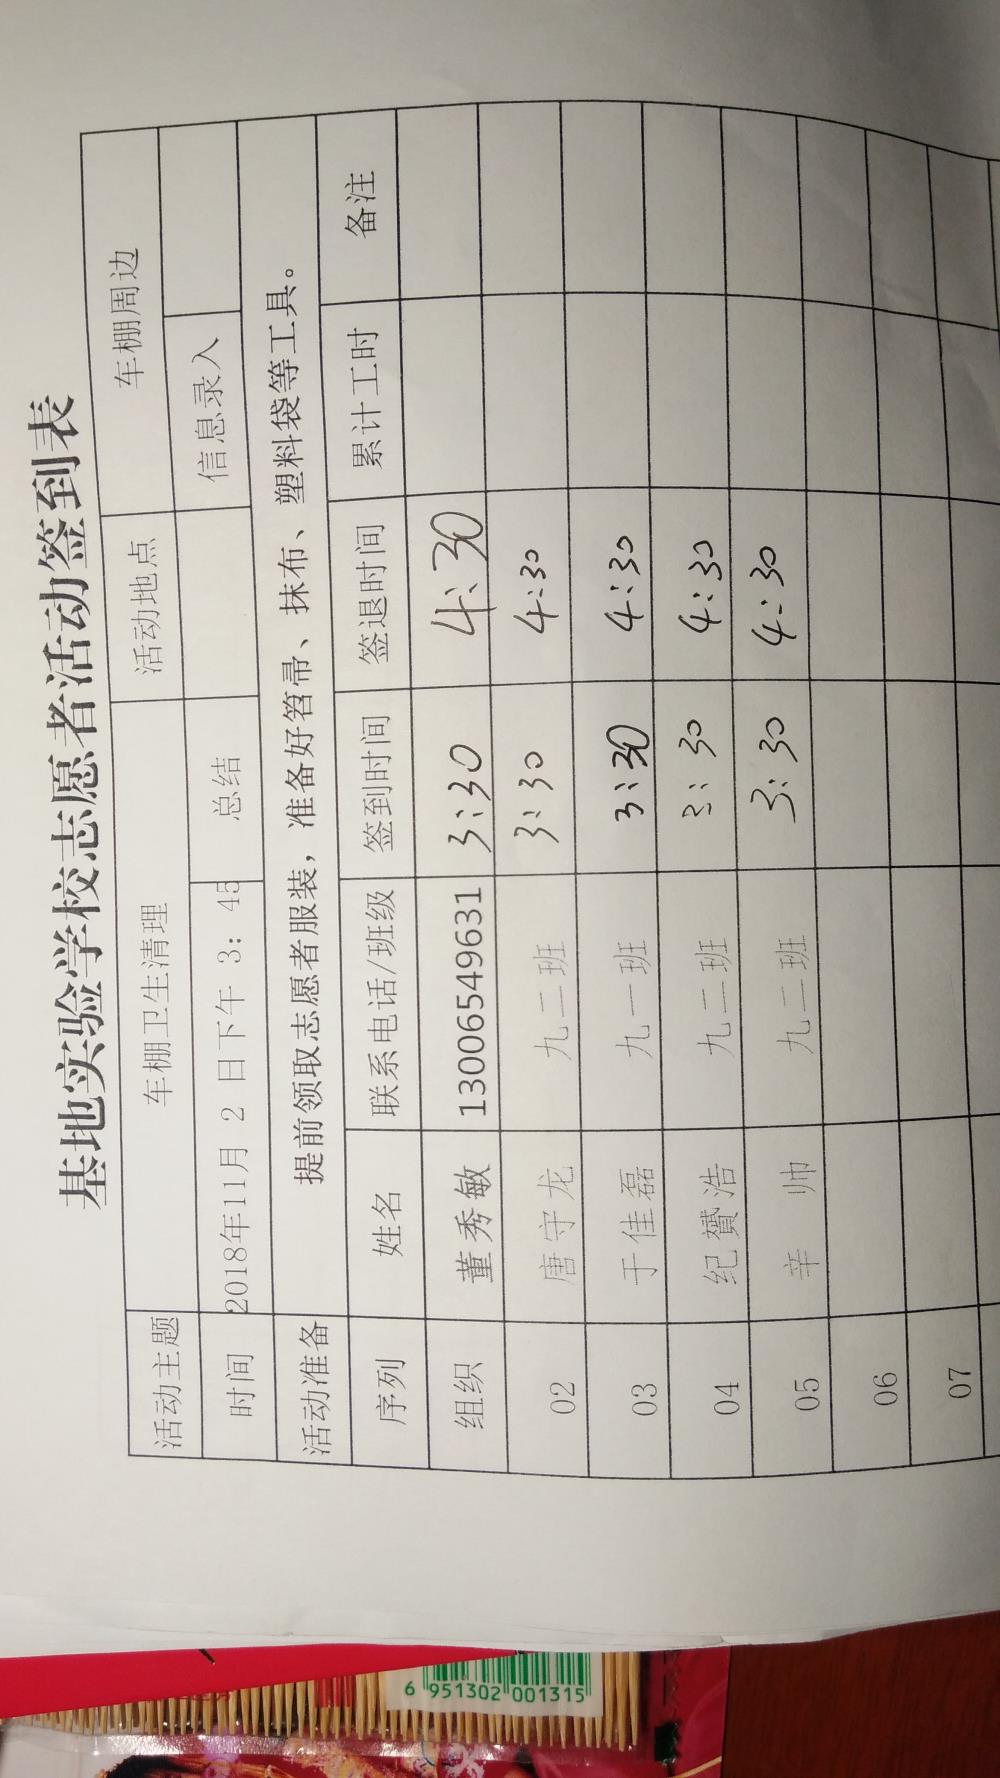 基地实验学校志愿者活动签到表
活动主题 车棚卫生清理 活动地点 车棚周边
时间 2018年11月 2 日下午 3: 45 总结 信息录入
活动准备 提前领取志愿者服装，准备好笤帚、抹布、塑料袋等工具。
序列 姓名 联系电话/班级 签到时间 签退时间 累计工时 备注
组织 董秀敏 13006549631 3:30 4:30
02 唐守龙 九二班 3:30 4:30
03 于佳磊 九一班 3:30 4:30
04 纪赟浩 九二班 3:30 4:30
05 辛 帅 九二班 3:30 4:30
06
07
6 951302 001315